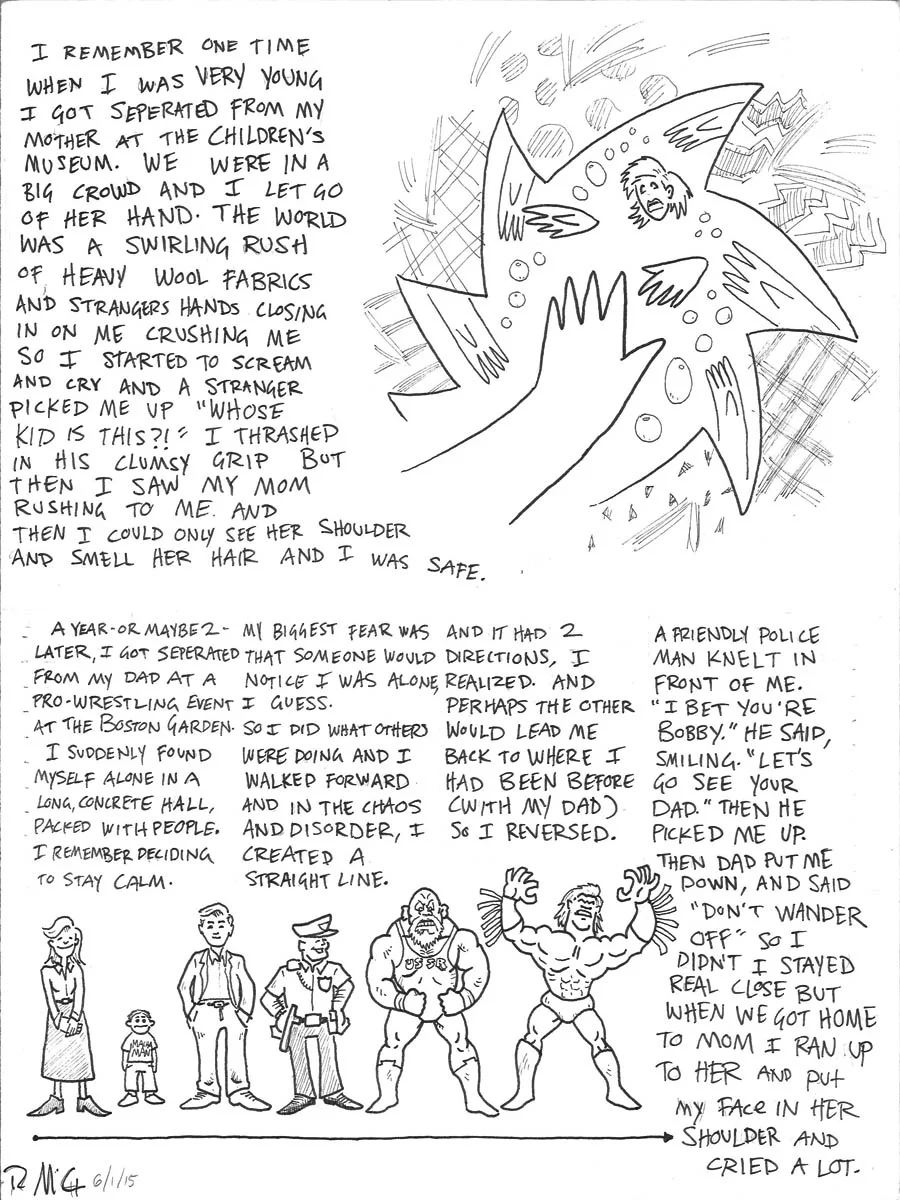 I REMEMBER ONE TIME
WHEN I WAS VERY YOUNG
I GOT SEPERATED FROM MY
MOTHER AT THE CHILDREN'S
MUSEUM. WE WERE IN A
BIG CROWD AND I LET GO
OF HER HAND. THE WORLD
WAS A SWIRLING RUSH
OF HEAVY WOOL FABRICS
AND STRANGERS HANDS CLOSING
IN ON ME CRUSHING ME
SO I STARTED TO SCREAM
AND CRY AND A STRANGER
PICKED ME UP "WHOSE
KID IS THIS?!" I THRASHED
IN HIS CLUMSY GRIP BUT
THEN I SAW MY MOM
RUSHING TO ME. AND
THEN I COULD ONLY SEE HER SHOULDER
AND SMELL HER HAIR AND I WAS SAFE.
A YEAR-OR MAYBE 2-
LATER, I GOT SEPERATED
FROM MY DAD AT A
PRO-WRESTLING EVENT
AT THE BOSTON GARDEN.
I SUDDENLY FOUND
MYSELF ALONE IN A
LONG, CONCRETE HALL,
PACKED WITH PEOPLE.
I REMEMBER DECIDING
TO STAY CALM.
MY BIGGEST FEAR WAS
THAT SOMEONE WOULD
NOTICE I WAS ALONE,
I GUESS.
SO I DID WHAT OTHERS
WERE DOING AND I
WALKED FORWARD
AND IN THE CHAOS
AND DISORDER, I
CREATED A
STRAIGHT LINE.
AND IT HAD 2
DIRECTIONS, I
REALIZED. AND
PERHAPS THE OTHER
WOULD LEAD ME
BACK TO WHERE I
HAD BEEN BEFORE
(WITH MY DAD)
SO I REVERSED.
A FRIENDLY POLICE
MAN KNELT IN
FRONT OF ME.
"I BET YOU'RE
BOBBY." HE SAID,
SMILING. "LET'S
GO SEE YOUR
DAD." THEN HE
PICKED ME UP.
THEN DAD PUT ME
DOWN, AND SAID
"DON'T WANDER
OFF" SO I
DIDN'T I STAYED
REAL CLOSE BUT
WHEN WE GOT HOME
TO MOM I RAN UP
TO HER AND PUT
MY FACE IN HER
SHOULDER AND
CRIED A LOT.
USSR
MAN
6/1/15